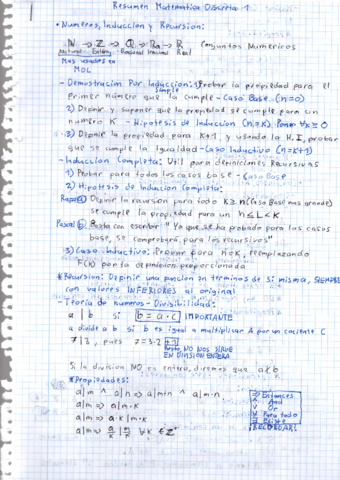 Resumen Matemática Discreta 1
• Numeros, Inducción y Recursion:
N → Z → Q → Ra → R Conjuntos Numericos
Natural Entero Racional Irracional Real
Mas usados en
MDL
- Demostración Por Inducción Simple: 1) Probar la propiedad para el
primer número que la cumple - Caso Base (n=0)
2) Definir y suponer que la propiedad se cumple para un
numero K - Hipotesis de Inducción (n=K). Poner ∀K≥0
3) Definir la propiedad para K+1, y usando la H.I, probar
que se cumple la igualdad - Caso Inductivo (n=K+1)
- Inducción Completa: Util para definiciones Recursivas
1) Probar para todos los casos base - Caso Base
2) Hipotesis de Induccion Completa:
a) Definir la recursion para todo K≥n (Caso Base mas grande)
se cumple la propiedad para un n≤L<K.
b) Basta con escribir: "Ya que se ha probado para los casos
base, se comprobará para los recursivos"
3) Caso Inductivo: Probar para n=K, reemplazando
F(K) por la definicion proporcionada
* Recursion: Definir una funcion en terminos de si misma, SIEMPRE
con valores INFERIORES al original
- Teoría de numeros - Divisibilidad:
a | b si b = a · c IMPORTANTE
a divide a b si b es igual a multiplicar A por un cociente C
7 = 3·2 +1
Resto, NO NOS SIRVE
EN DIVISION ENTERA
Si la division NO es entera, diremos que a∤b
* Propiedades:
a|m ∧ a|n ⇒ a|m+n ∧ a|m-n
a|m ⇒ a|m·K
a|m ⇒ a·K|m·K
a|m ⇒ a/K | m/K ∀K ∈ Z⁺
⇒ Entonces
∧ And
∨ Or
∀ Para todo
∃ Existe
¡RECORDAR!